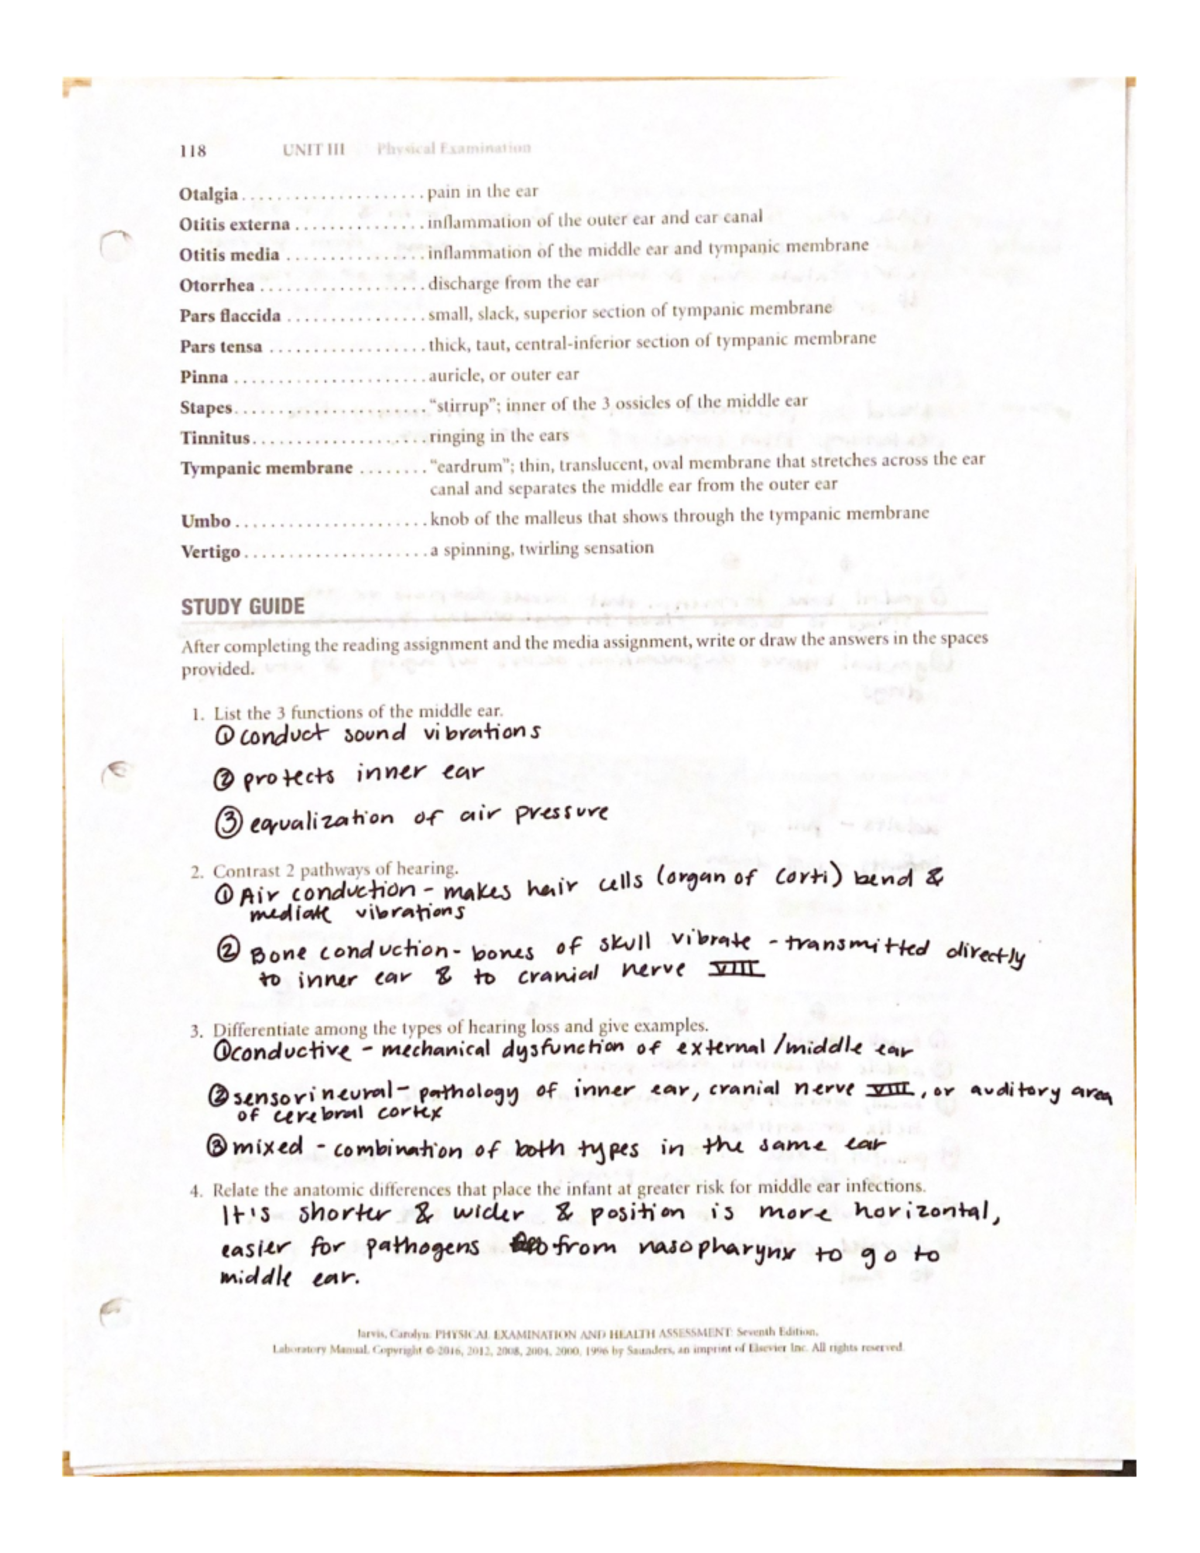 118 UNIT III Physical Examination
Otalgia . . . . . . . . . . . . . . . . . . . . . pain in the ear
Otitis externa . . . . . . . . . . . . . . . inflammation of the outer ear and ear canal
Otitis media . . . . . . . . . . . . . . . . inflammation of the middle ear and tympanic membrane
Otorrhea . . . . . . . . . . . . . . . . . . . discharge from the ear
Pars flaccida . . . . . . . . . . . . . . . . small, slack, superior section of tympanic membrane
Pars tensa . . . . . . . . . . . . . . . . . . thick, taut, central-inferior section of tympanic membrane
Pinna . . . . . . . . . . . . . . . . . . . . . . auricle, or outer ear
Stapes. . . . . . . . . . . . . . . . . . . . . . "stirrup"; inner of the 3 ossicles of the middle ear
Tinnitus. . . . . . . . . . . . . . . . . . . . ringing in the ears
Tympanic membrane . . . . . . . . "eardrum"; thin, translucent, oval membrane that stretches across the ear
canal and separates the middle ear from the outer ear
Umbo . . . . . . . . . . . . . . . . . . . . . . knob of the malleus that shows through the tympanic membrane
Vertigo . . . . . . . . . . . . . . . . . . . . . a spinning, twirling sensation
STUDY GUIDE
After completing the reading assignment and the media assignment, write or draw the answers in the spaces
provided.
1. List the 3 functions of the middle ear.
① conduct sound vibrations
② protects inner ear
③ equalization of air pressure
2. Contrast 2 pathways of hearing.
① Air conduction - makes hair cells (organ of Corti) bend &
mediate vibrations
② Bone conduction - bones of skull vibrate - transmitted directly
to inner ear & to cranial nerve VIII
3. Differentiate among the types of hearing loss and give examples.
① conductive - mechanical dysfunction of external/middle ear
② sensorineural - pathology of inner ear, cranial nerve VIII, or auditory area
of cerebral cortex
③ mixed - combination of both types in the same ear
4. Relate the anatomic differences that place the infant at greater risk for middle ear infections.
It's shorter & wider & position is more horizontal,
easier for pathogens from nasopharynx to go to
middle ear.
Jarvis, Carolyn: PHYSICAL EXAMINATION AND HEALTH ASSESSMENT: Seventh Edition,
Laboratory Manual. Copyright © 2016, 2012, 2008, 2004, 2000, 1996 by Saunders, an imprint of Elsevier Inc. All rights reserved.